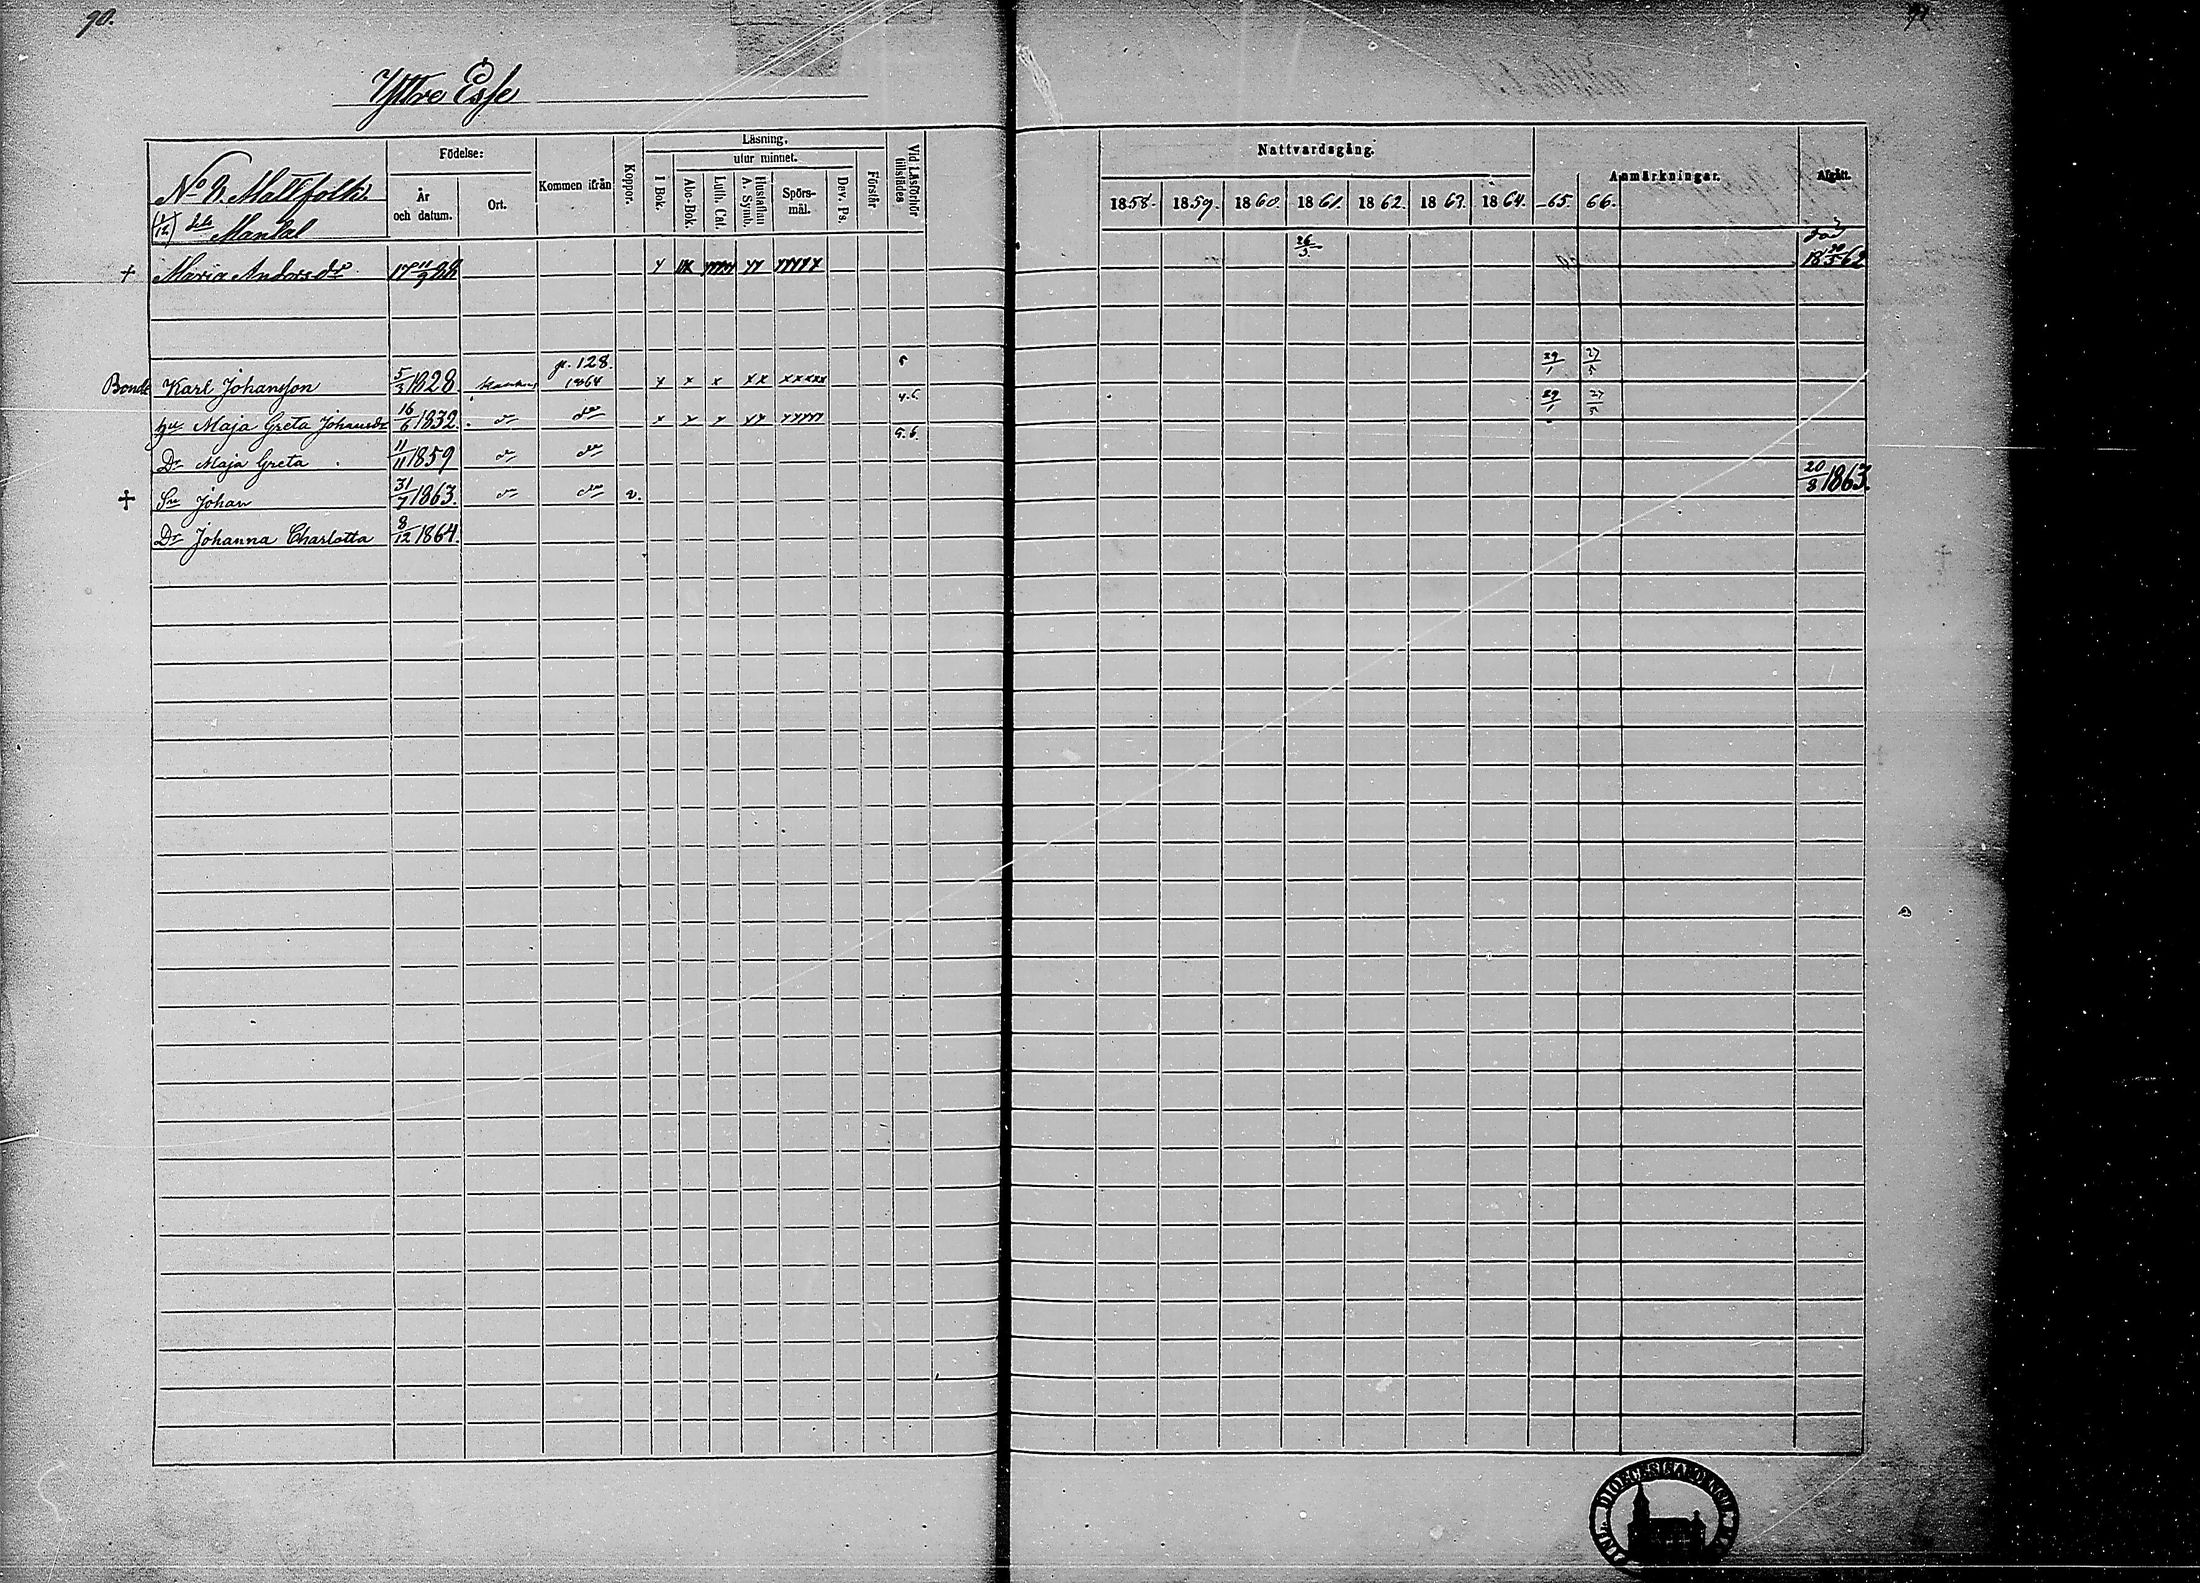 90.
Yttre Esse
Födelse:
Kommen ifrån
Koppor.
Läsning.
utur minnet.
I Bok.
Abc-Bok.
Luth. Cat.
Hustaflan
A. Symb.
Spörs-
mål.
Dav. Ps.
Förstår
Vid Läsförhör
tillstädes
År
och datum.
Ort.
Nattvardsgång.
Anmärkningar.
Afgått.
1858. 1859. 1860. 1861. 1862. 1863. 1864. -65. 66.
No 8. Mattfolk.
1/12 Mantal
26/5
död
† Maria Andersdr 17 11/9 88 18 30/5 62
p. 128.
Bonde Karl Johansson 5/3 1828 1864 x x x xx xxxxx 5 29/1 27/5
hu Maja Greta Johansdr 16/6 1832. 4.6 29/1 27/5
Dr Maja Greta 11/11 1859 5.6.
† Sn Johan 31/7 1863. v. 20/8 1863.
Dr Johanna Charlotta 8/12 1864.